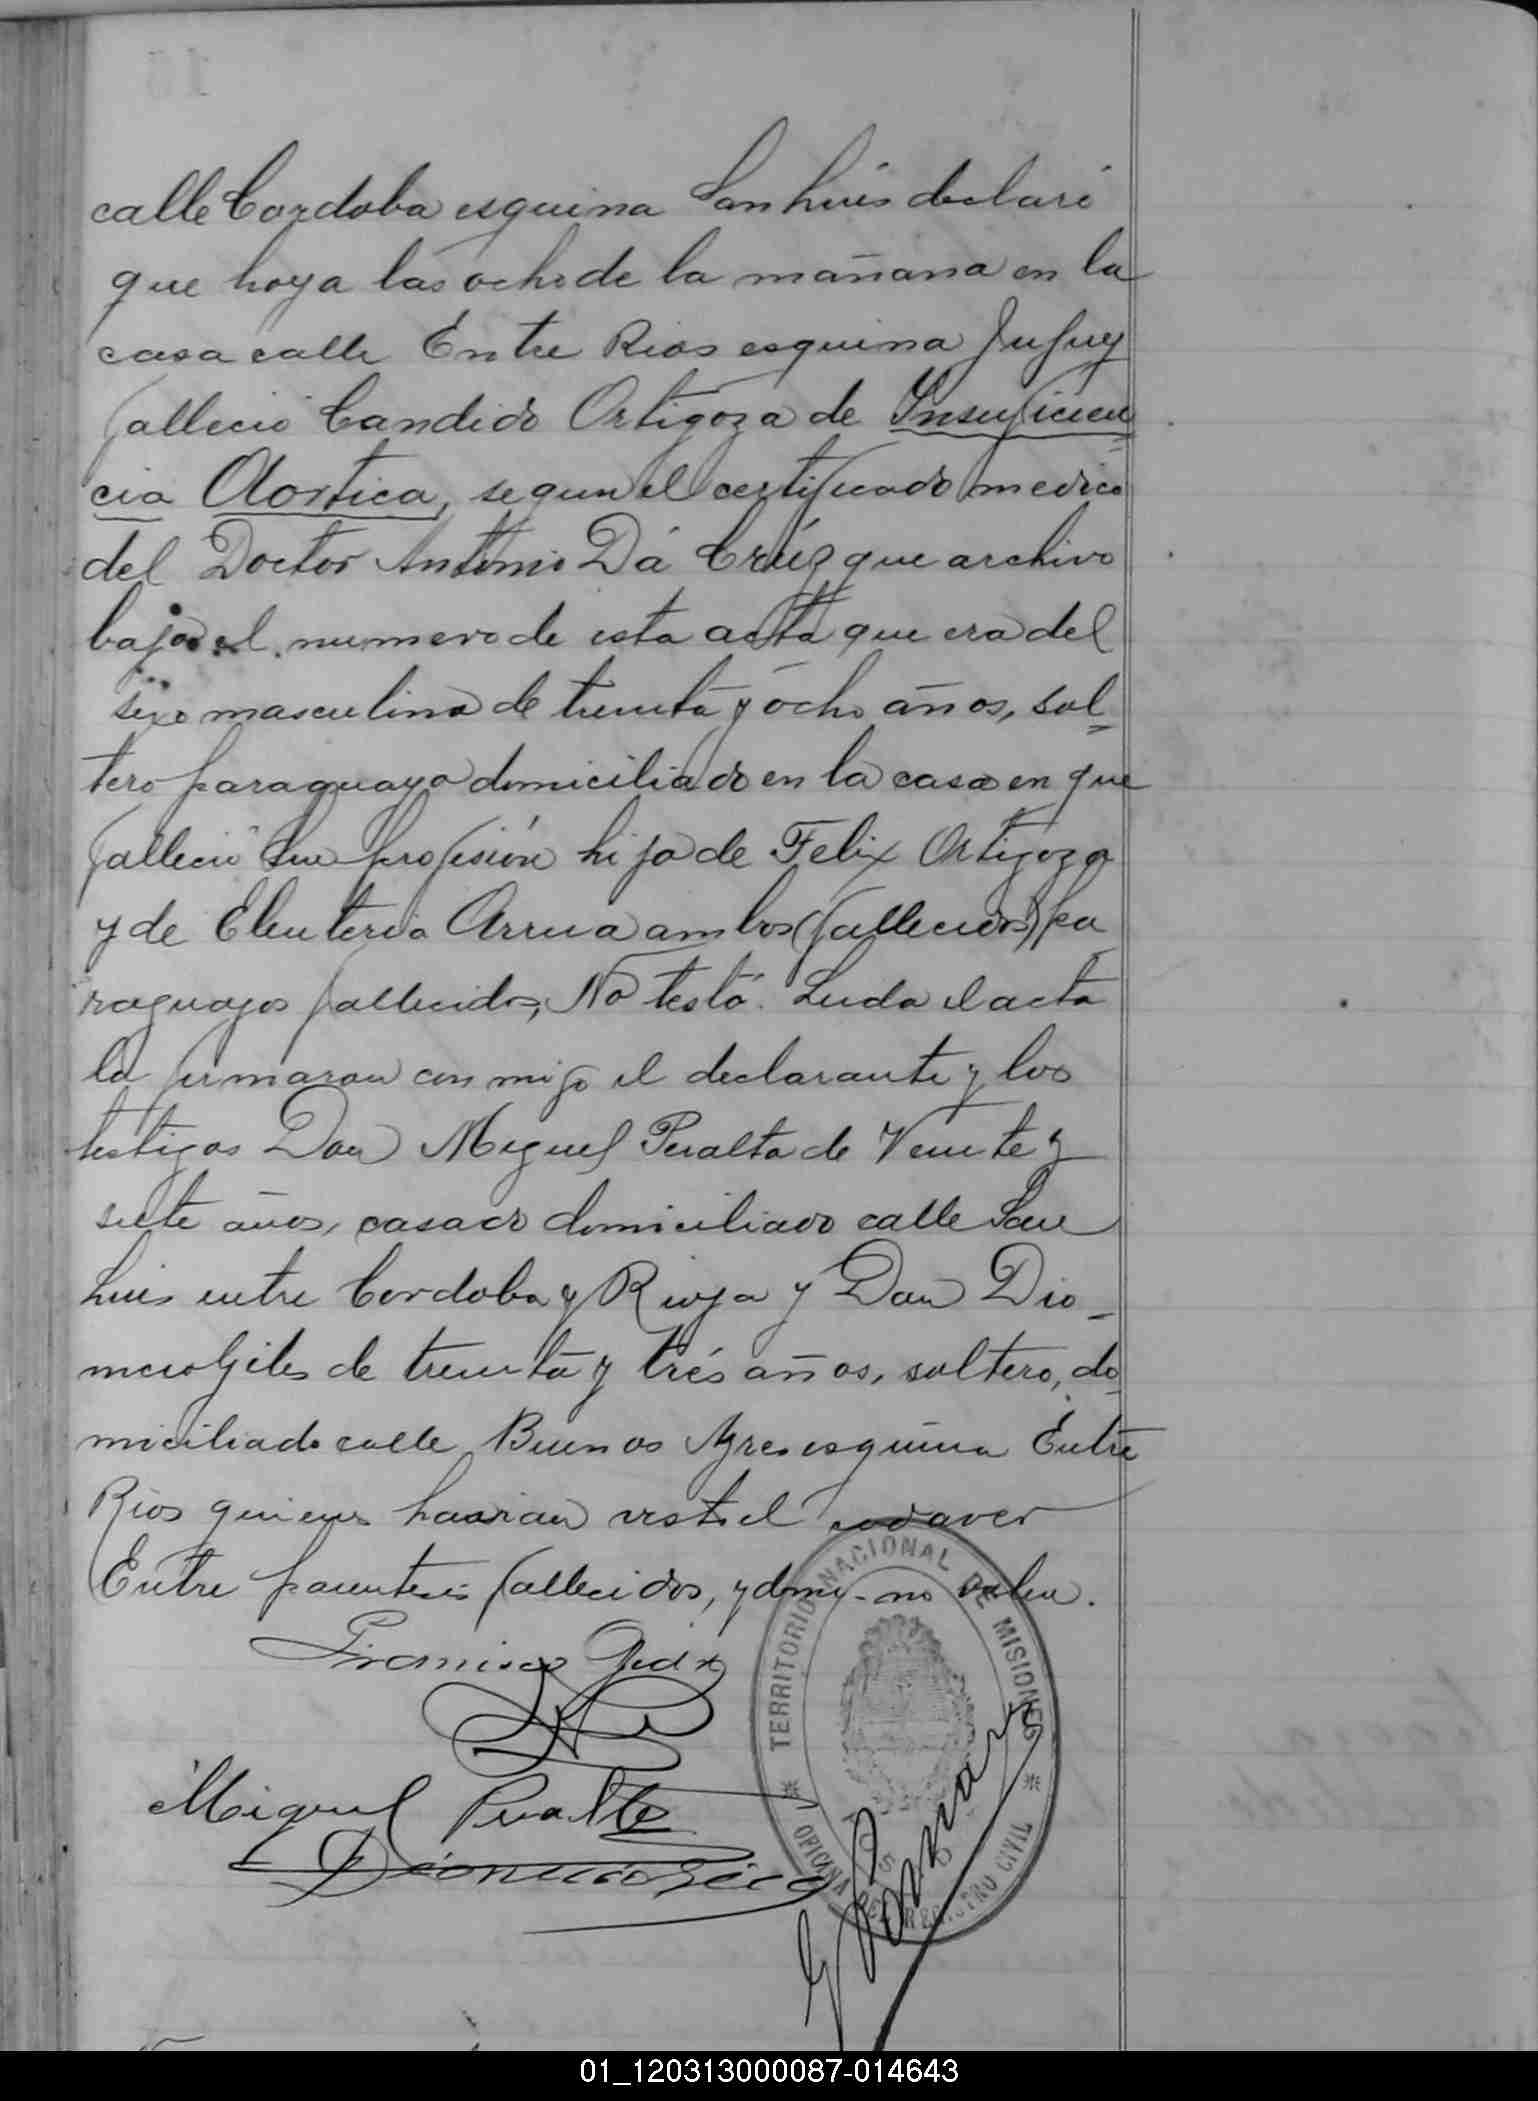 calle Cordoba esquina San Luis declaró
que hoy a las ocho de la mañana en la
casa calle Entre Rios esquina Jujuy
fallecio Candido Ortigoza de Insuficien
cia Aortica, segun el certificado medico
del Doctor Antonio Dá Crúz que archivo
bajo el numero de esta acta que era del
sexo masculino de treinta y ocho años, sol-
tero paraguayo domiciliado en la casa en que
fallecio sin profesión hijo de Felix Ortigoza
y de Eleuteria Arrua ambos (fallecidos) pa
raguayos fallecidos, No testó. Leida el acta
la firmaron con migo el declarante y los
testigos Don Miguel Peralta de Veinte y
siete años, casado domiciliado calle San
Luis entre Cordoba y Rioja y Don Dio-
mero Giles de treinta y trés años, soltero, do
miciliado calle Buenos Ayres esquina Entre
Rios quienes habian visto el cadaver
Entre parentesis fallecidos, y domy - no valen.
Francisco
Miguel Peralta
TERRITORIO NACIONAL DE MISIONES
OFICINA DEL REGISTRO CIVIL
01_120313000087-014643